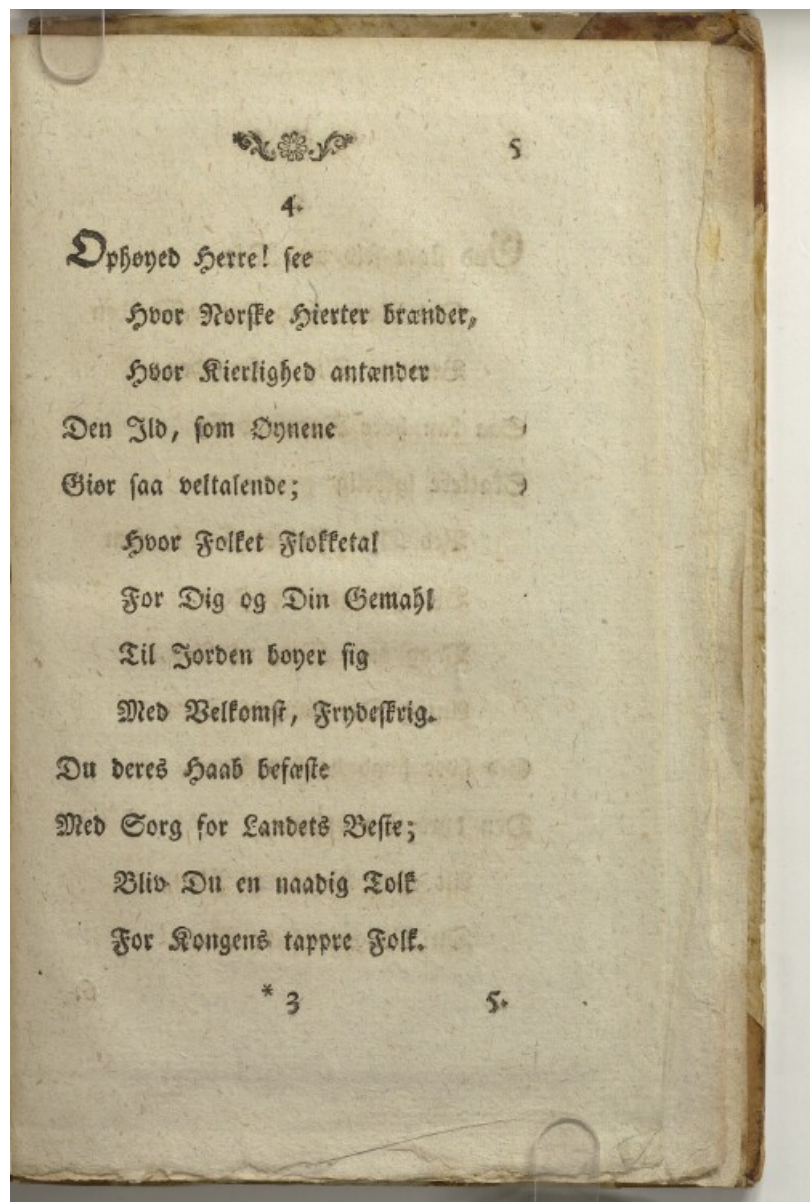 5
4.
Ophøyed Herre! see
Hvor Norske Hierter brænder,
Hvor Kierlighed antænder
Den Ild, som Øynene
Giør saa veltalende;
Hvor Folket Flokketal
For Dig og Din Gemahl
Til Jorden bøyer sig
Med Velkomst, Frydeskrig.
Du deres Haab befæste
Med Sorg for Landets Beste;
Bliv Du en naadig Tolk
For Kongens tappre Folk.
* 3 5.